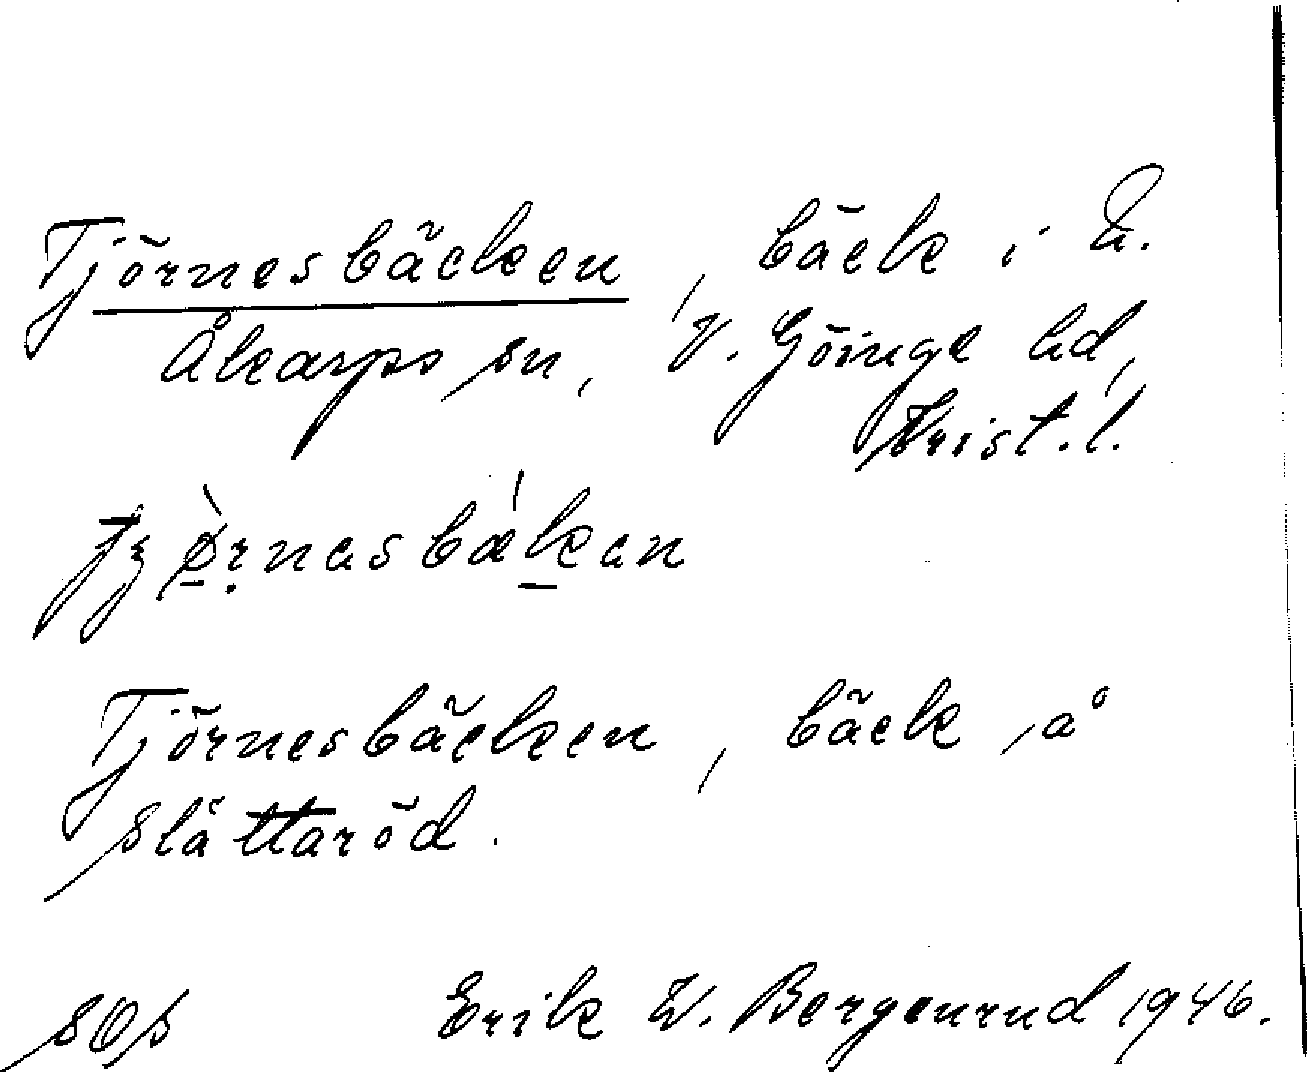 Tjörnesbäcken, bäck i Ö.
Åkarps sn, V. Göinge hd,
Krist. l.
Tjörnesbäcken, bäck på
Slättaröd.
Erik W. Bergenrud 1946.